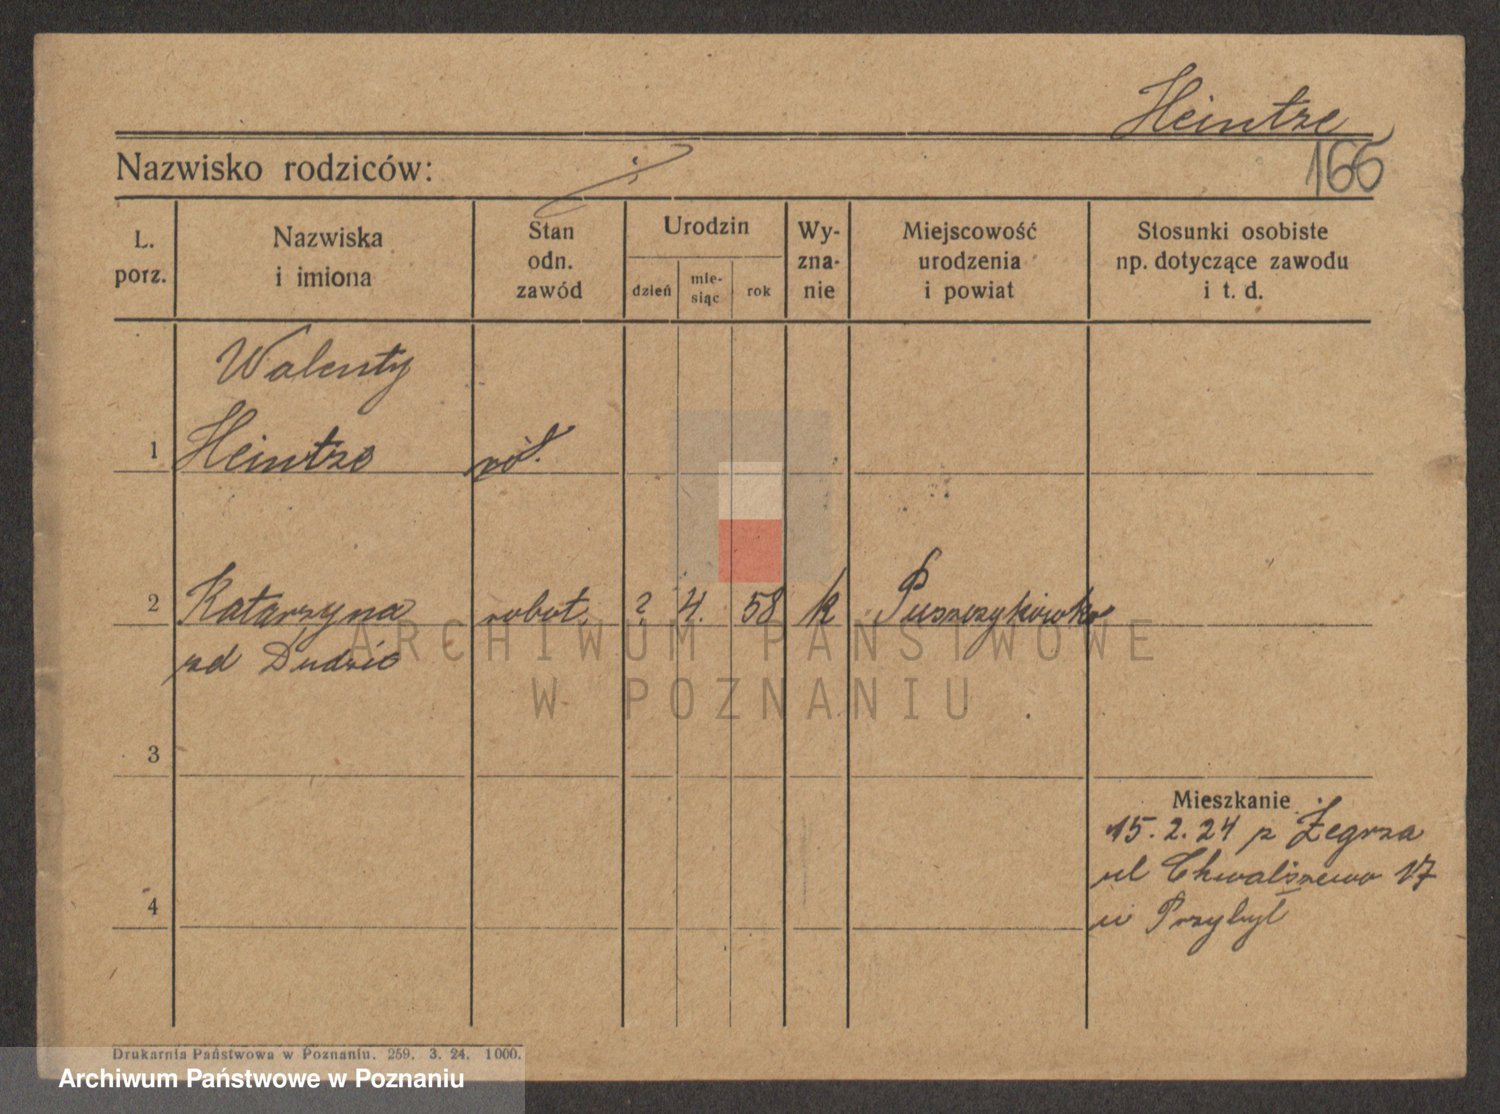 Heintze
166
Nazwisko rodziców: ;
L. porz.
Nazwiska i imiona
Stan odn. zawód
Urodzin
dzień
mie- siąc
rok
Wy- zna- nie
Miejscowość urodzenia i powiat
Stosunki osobiste np. dotyczące zawodu i t. d.
Walenty
1 Heintze
2 Katarzyna robot. ? 4. 58 k Puszczykowko
zd Dudzic
3
Mieszkanie
15.2.24 z Żegrza
ul Chwaliszewo 17
u Przybył
4
ARCHIWUM PAŃSTWOWE
W POZNANIU
Drukarnia Państwowa w Poznaniu. 259. 3. 24. 1000.
Archiwum Państwowe w Poznaniu